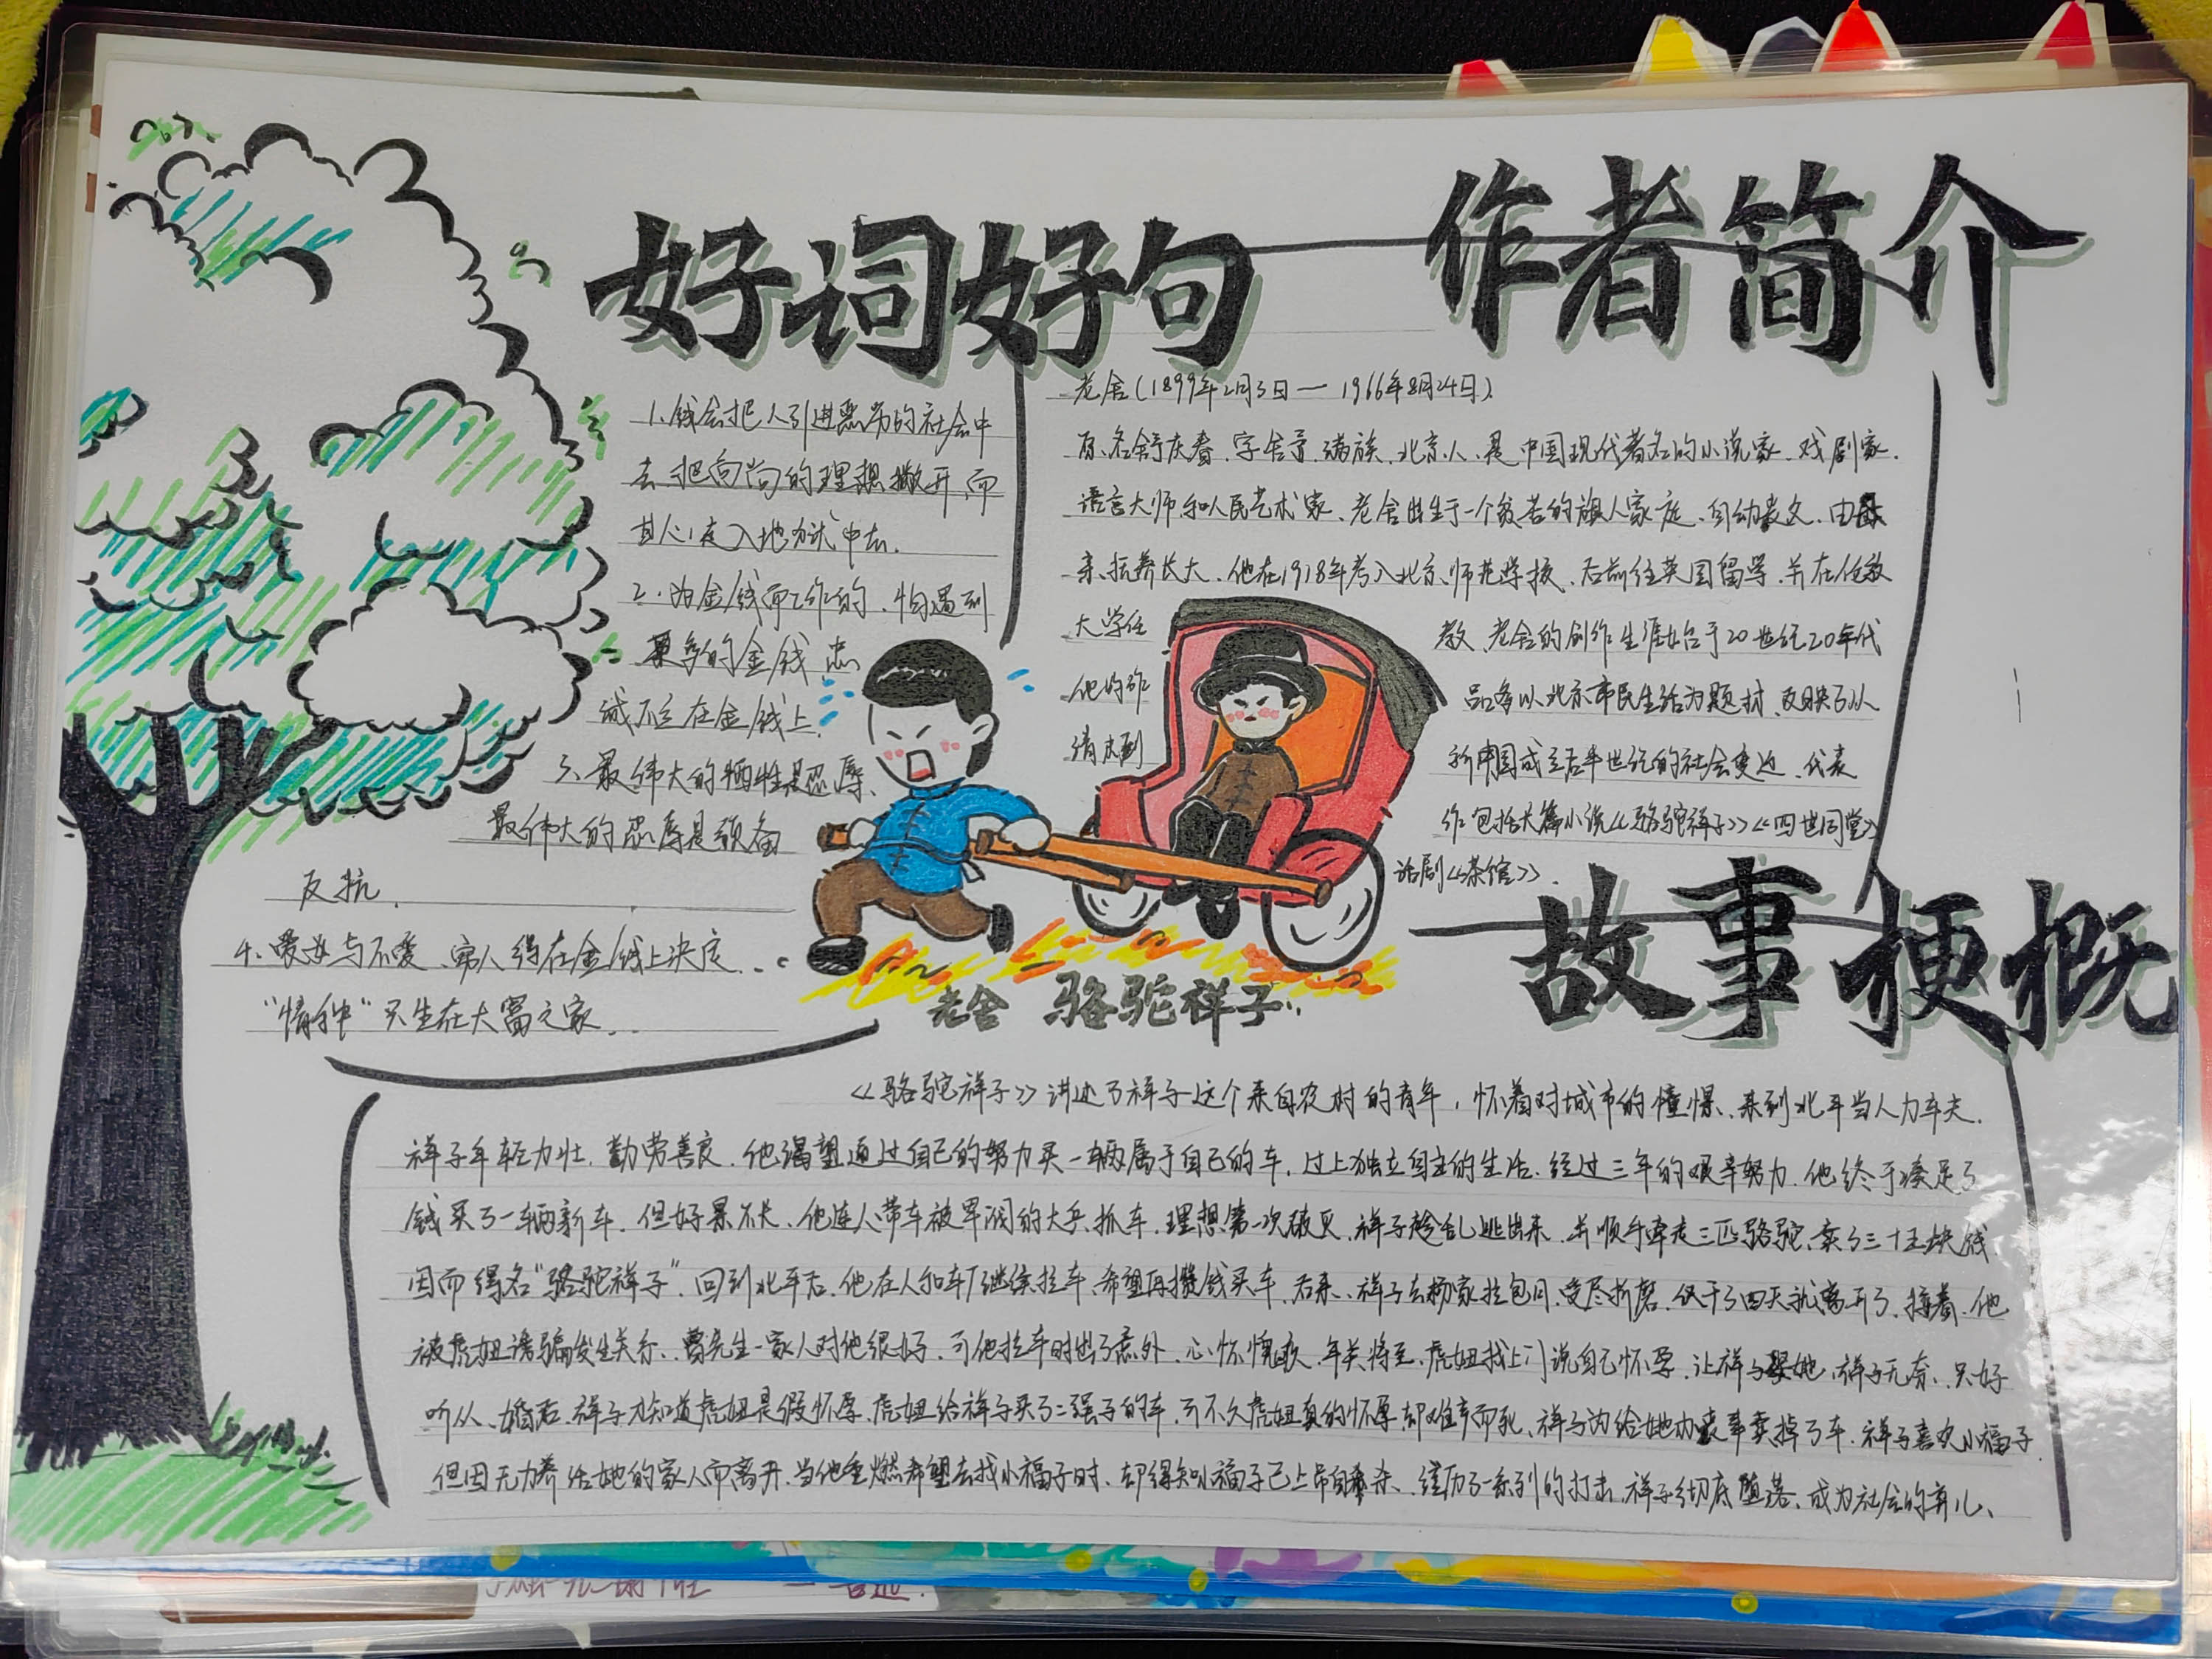 好词好句
1.钱会把人引进恶劣的社会中
去把高尚的理想撇开,而
甘心走入地狱中去.
2.为金钱而工作的,怕遇到
更多的金钱,忠
诚不立在金钱上.
3.最伟大的牺牲是忍辱、
最伟大的忍辱是预备
反抗.
4.爱与不爱、穷人得在金钱上决定...
“情种”只生在大富之家...
作者简介
老舍(1899年2月3日一1966年8月24日).
原名舒庆春、字舍予、满族、北京人、是中国现代著名的小说家、戏剧家、
语言大师和人民艺术家、老舍出生于一个贫苦的旗人家庭、自幼丧父、由母
亲抚养长大、他在1918年考入北京师范学校、后前往英国留学、并在伦敦
大学任教、老舍的创作生涯始于20世纪20年代
他的作品多以北京市民生活为题材、反映了从
清末到新中国成立后半世纪的社会变迁、代表
作包括长篇小说《骆驼祥子》《四世同堂》
话剧《茶馆》.
老舍 骆驼祥子
故事梗概
《骆驼祥子》讲述了祥子这个来自农村的青年,怀着对城市的憧憬、来到北平当人力车夫.
祥子年轻力壮、勤劳善良、他渴望通过自己的努力买一辆属于自己的车、过上独立自主的生活、经过三年的艰辛努力、他终于凑足了
钱买了一辆新车、但好景不长、他连人带车被军阀的大兵抓车、理想第一次破灭、祥子趁乱逃出来、并顺手牵走三匹骆驼、卖了三十五块钱
因而得名“骆驼祥子”、回到北平后、他在人和车厂继续拉车、希望再攒钱买车、后来、祥子去杨家拉包月、受尽折磨、仅干了四天就离开了、接着、他
被虎妞诱骗发生关系、曹先生一家人对他很好、可他拉车时出了意外、心怀愧疚、年关将至、虎妞找上门说自己怀孕、让祥子娶她、祥子无奈、只好
听从、婚后、祥子才知道虎妞是假怀孕、虎妞给祥子买了二强子的车、可不久虎妞真的怀孕、却难产而死、祥子为给她办丧事卖掉了车、祥子喜欢小福子、
但因无力养活她的家人而离开、当他重燃希望去找小福子时、却得知小福子已上吊自杀、经历了一系列的打击、祥子彻底堕落、成为社会的弃儿、